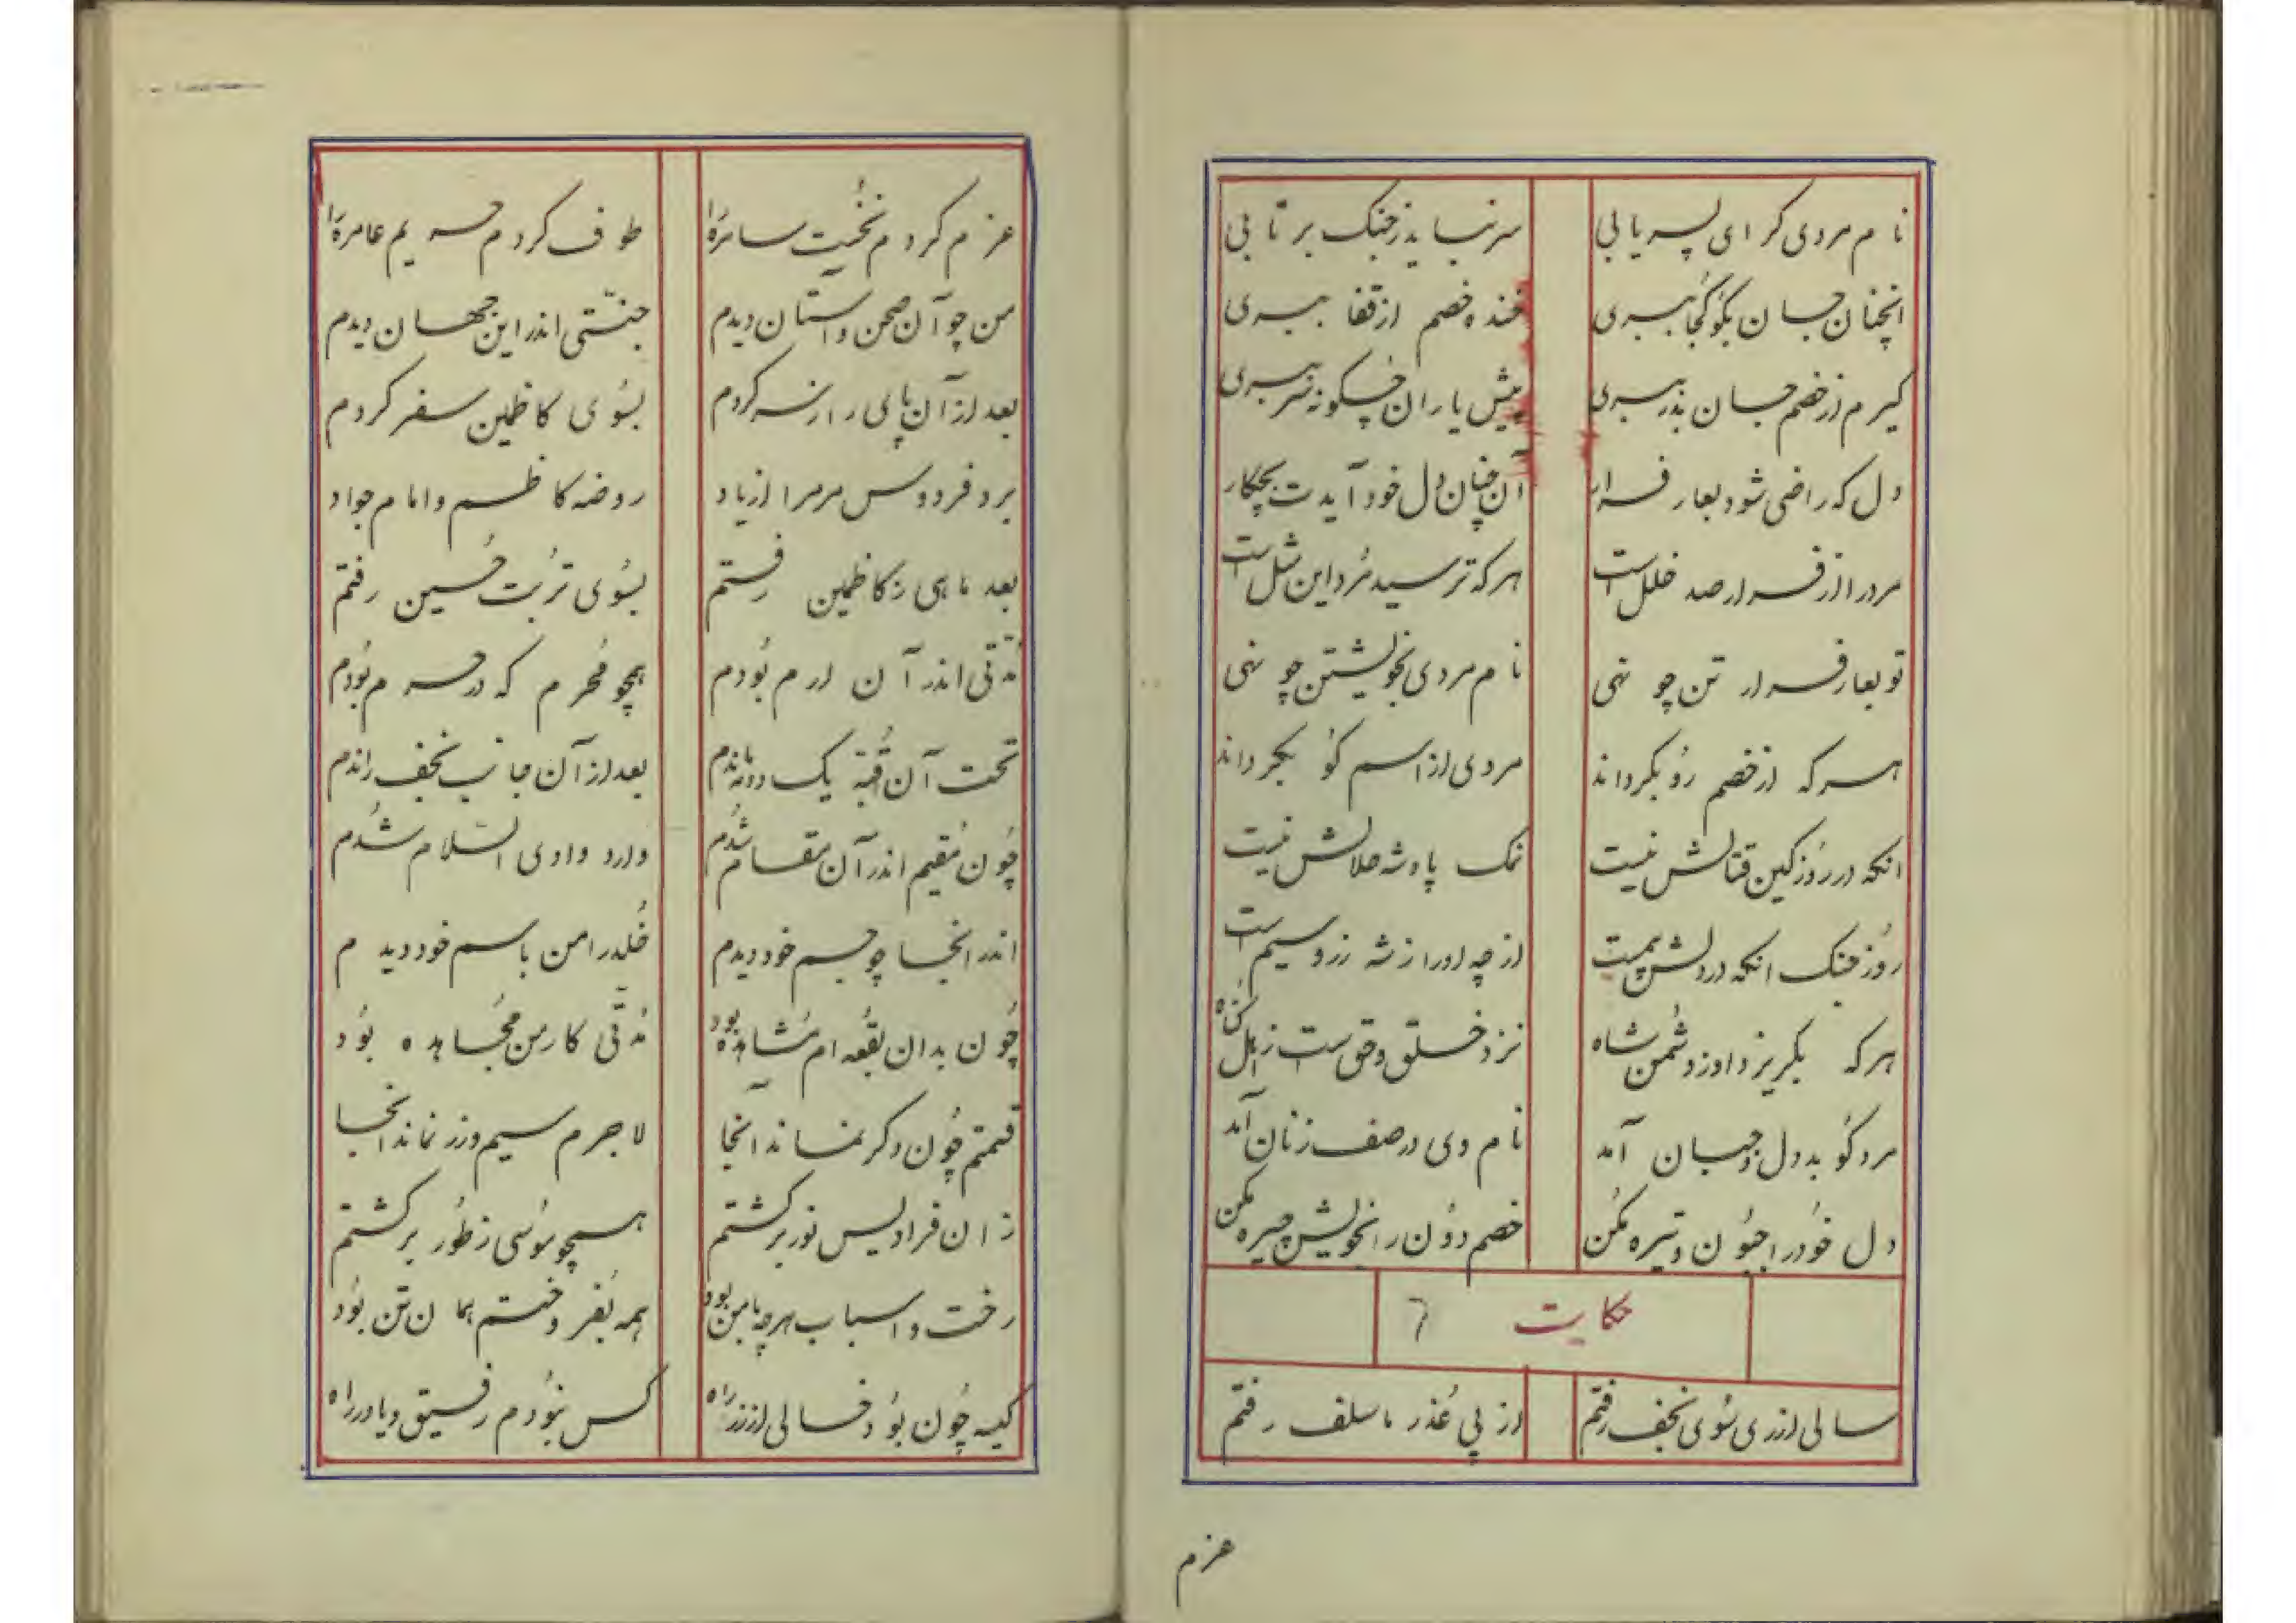 نام مردی کر ای پسر یابی سر نباید ز جنک بر تابی
انچنان جان بکو کجا ببری خنده خصم از قفا ببری
کیرم از خصم جان بدر ببری پیش یاران چکونه سر ببری
دل که راضی شود بعار فرار آن چنان دل خود آیدت بچکار
مرد را از فرار صد خلل است هر که ترسید مُرد این مثل است
تو بعار فرار تن چو نهی نام مردی بخویشتن چو نهی
هر که از خصم رُو بکرداند مردی از اسم کو بکرداند
انکه در رُوز کین قتالش نیست نمک پادشه حلالش نیست
رُوز جنک انکه در دلش بیمست از چه او را ز شه زر و سیم است
هر که بکریزد او ز دُشمن شاه نزد خلق وقی ست ز اهل کُناه
مرد کو بددل و جبان آمد نام وی در صف زنان آمد
دل خُود را جبُون و تیره مکُن خصم دُون را بخویش چیره مکن
حکایت ٦
سالی از ری سُوی نجف رفتم از پی عُذر ما سلف رفتم
عزم
عزم کردم نخُیت سامرَه را طوف کردم حریم عامرَه را
من چو آن صحن و استان دیدم جنّتی اندر این جهان دیدم
بعد از آن پای را ز سر کردم بسُوی کاظمین سفر کردم
برد فردوس مر مرا از یاد روضه کاظم و امام جواد
بعد ماهی ز کاظمین رفتم بسُوی تربُت حُسین رفتم
مُدّتی اندر آن ارم بُودم همچو مُحرم که در حرم بُودم
تحت آن قُبّة یک دو مه ماندم بعد از آن جانب نجف راندم
چُون مُقیم اندر آن مقام شُدم وارد وادی السّلام شُدم
اندر انجا چو جسم خود دیدم خُلد را من باسم خود دیدم
چُون بدان بُقعه ام مُشاهده بود مُدّتی کار من مُجاهده بوُد
قسمتم چُون دکر نماند انجا لاجرم سیم و زر نماند انجا
زان فرادیس نور برکشتم همچو مُوسی ز طُور برکشتم
رخت و اسباب هر چه با من بود همه بفرُوختم همان تن بوُد
کیسه چُون بوُد خالی از زر راه کس نبُودم رفیق و یاور راه